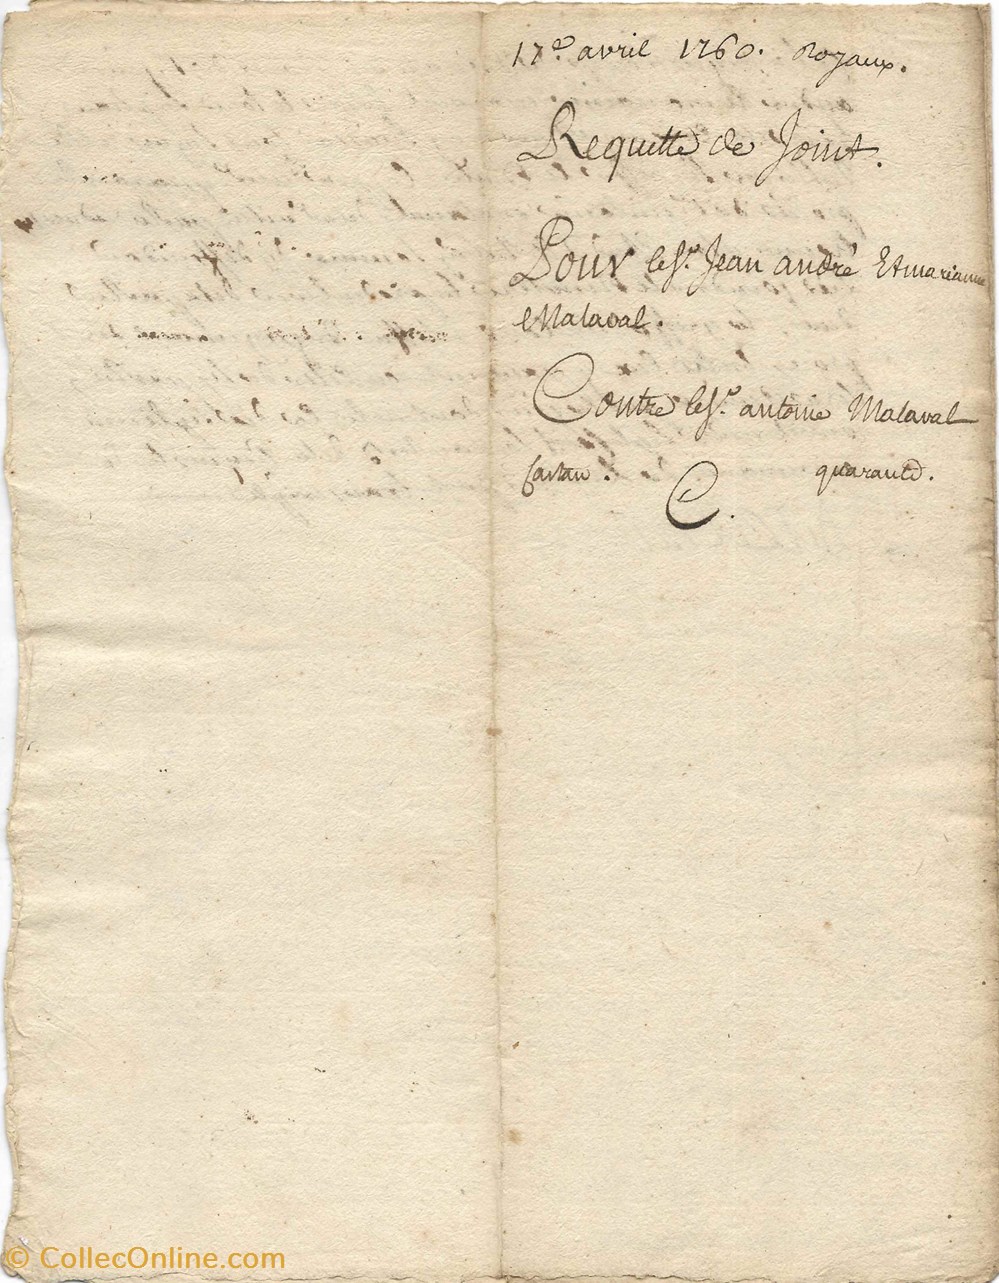 17e. avril 1760. Royaux.
Requette de Joint.
Pour le Sr. Jean andré Et marianne
Malaval.
Contre le Sr. antoine Malaval
Castan. quarante.
C.
© CollecOnline.com